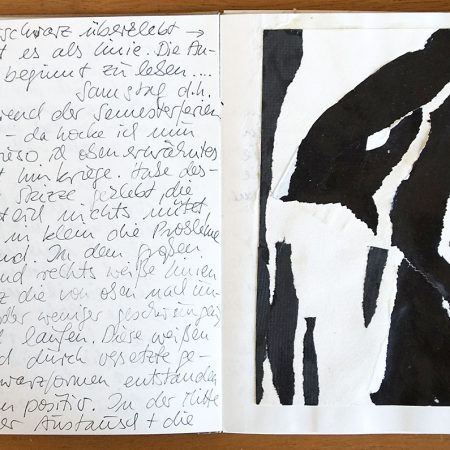 schwarz überklebt →
t es als Linie. Die An-
beginnt zu leben...
Samstag d.h.
rend der Semesterferien
- da hocke ich nun
ieso, d oben erwähntes
t hinkriege. Habe des-
Skizze geklebt, die
teil nichts nützt
in klein die Probleme
nd. In dem großen
nd rechts weiße Linien
z die von oben nach un-
oder weniger geschwungen
laufen. Diese weißen
d durch versetzte ge-
hwarzformen entstanden
n positiv. In der Mitte
er Austausch + die